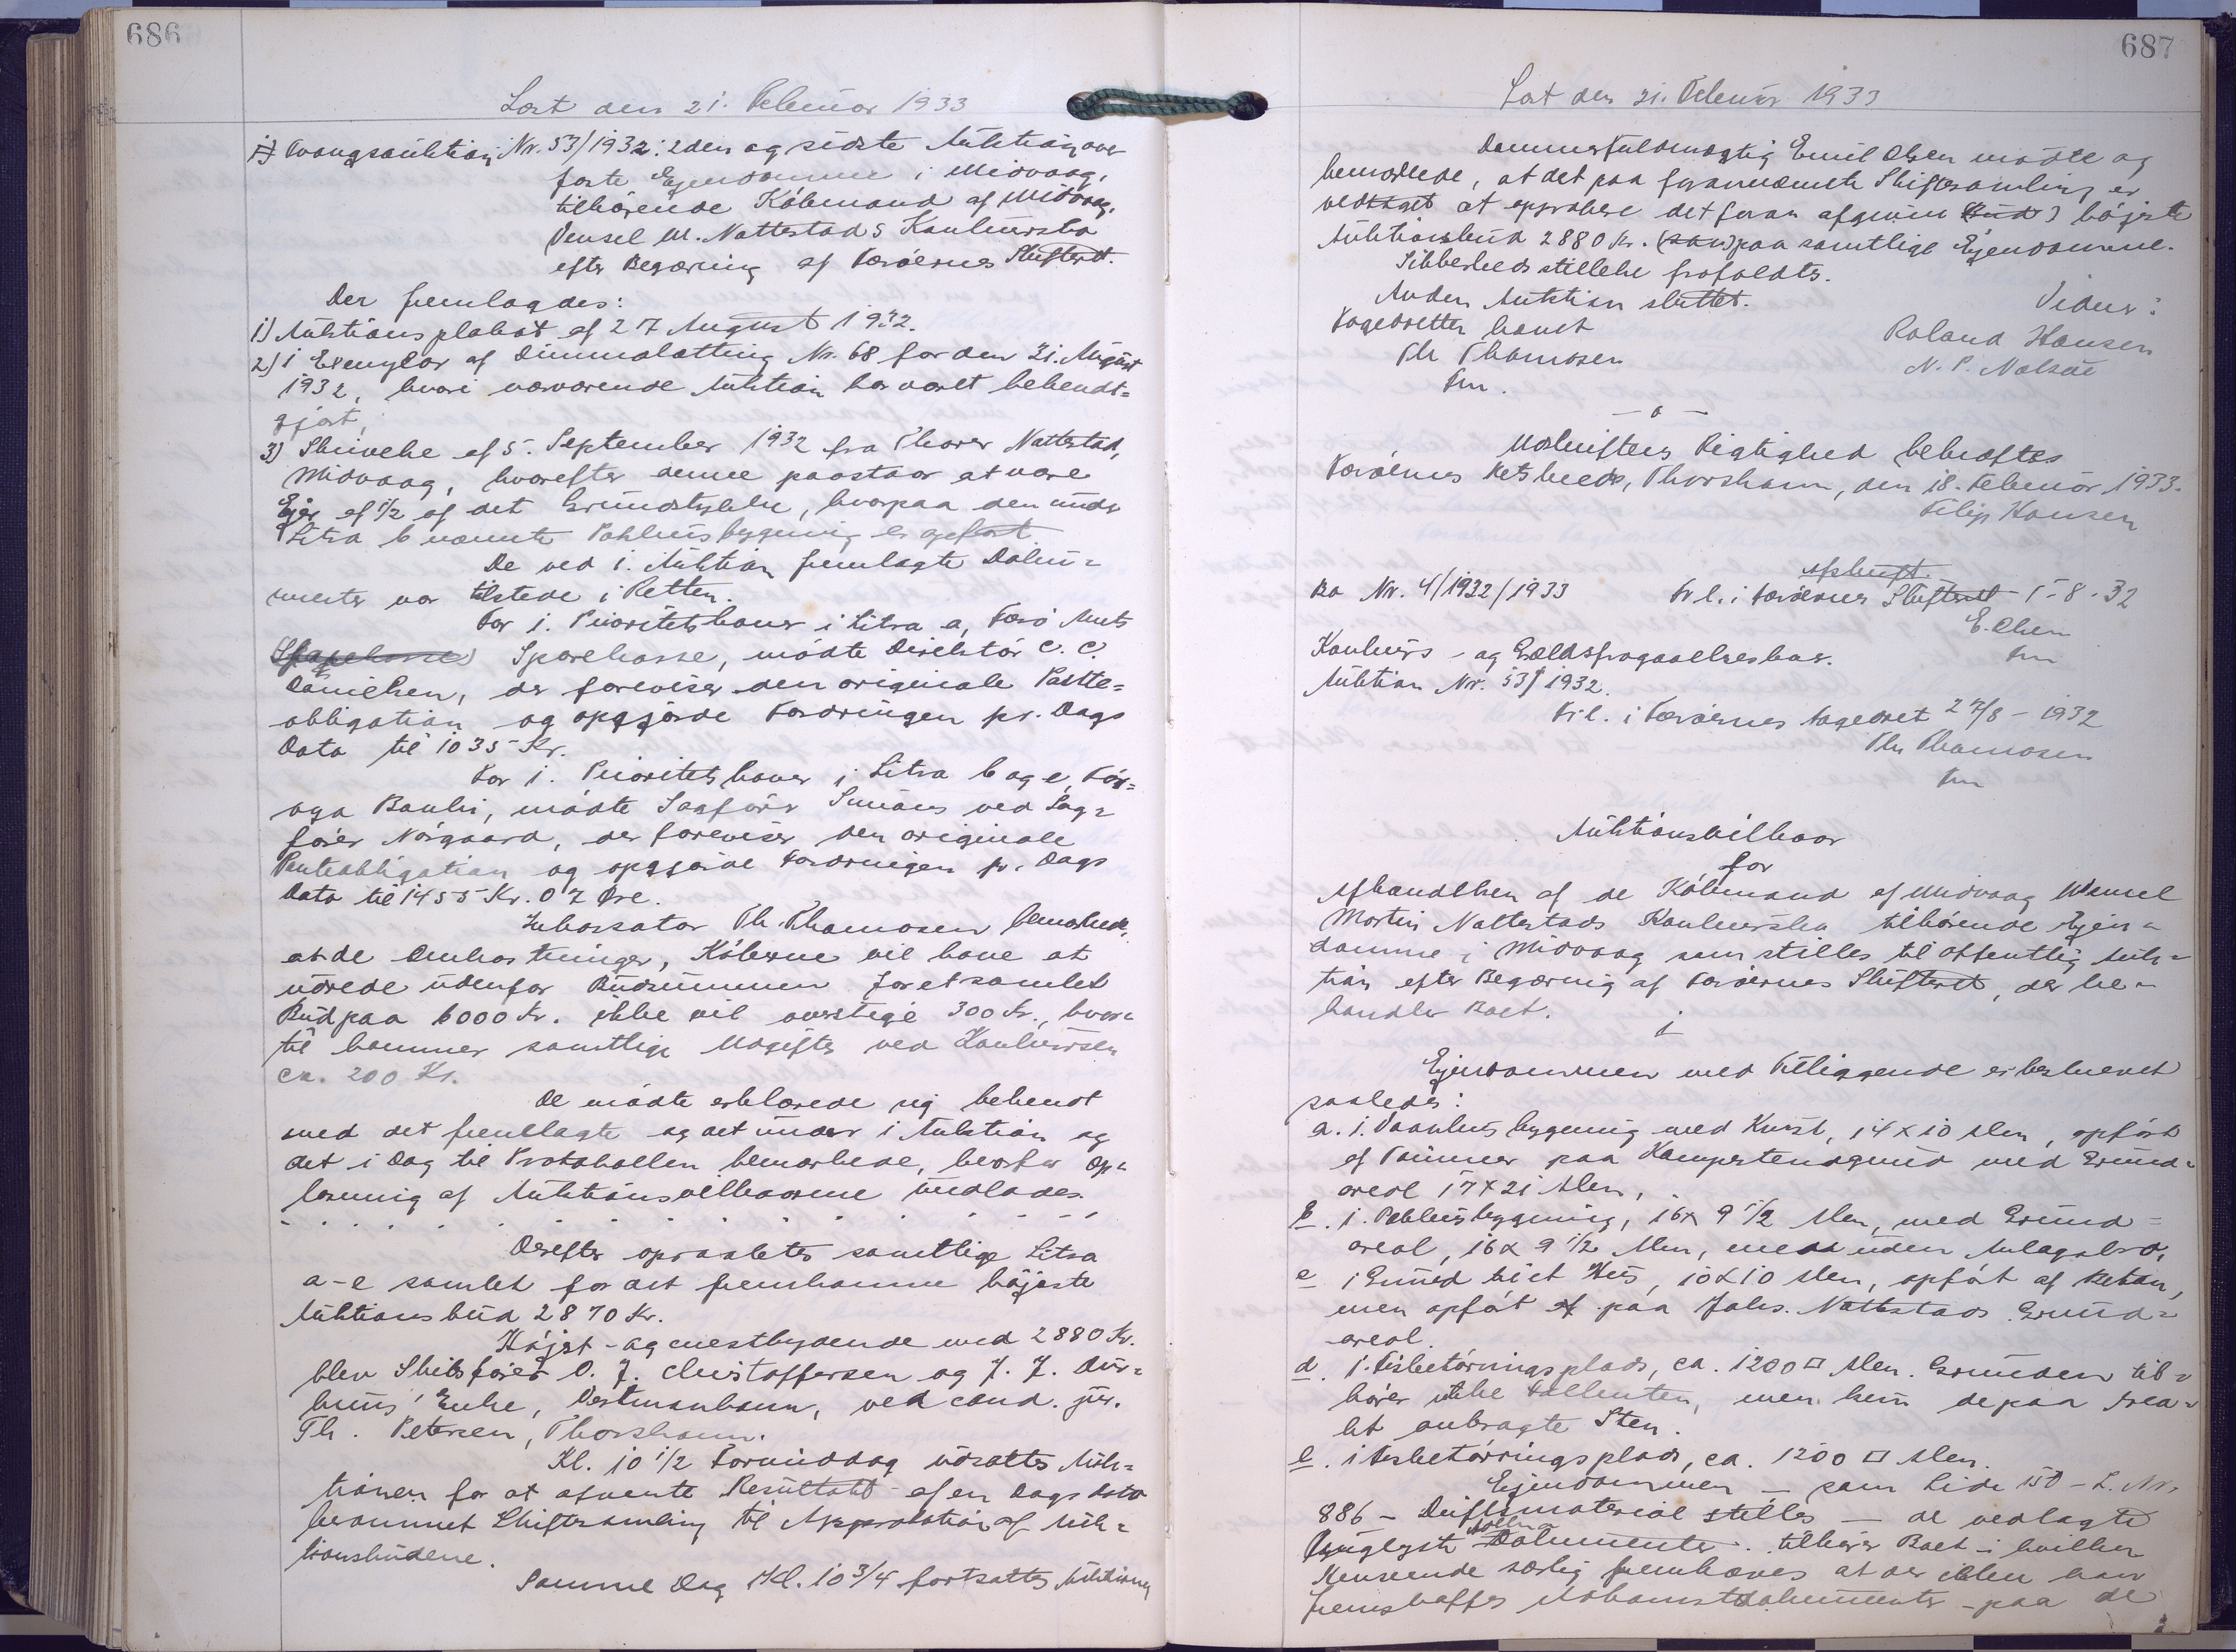 686
Læst den 21. Februar 1933
1) Tvangsauktion Nr. 53/1932: 2den og sidste Auktion over
faste Ejendomme i Midvaag,
tilhørende Købmand af Midvaag,
Vensel M. Nattestads Konkursbo
efter Begæring af Færøernes Skifteret.
Der fremlagdes:
1) Auktionsplakat af 27 August 1932.
2) 1 Exemplar af Dimmalætting Nr. 68 for den 31. August
1932, hvori nærværende Auktion har været bekendt-
gjort,
3) Skrivelse af 5. September 1932 fra Thorer Nattestad,
Midvaag, hvorefter denne paastaar at være
Ejer af 1/2 af det Grundstykke, hvorpaa den under
Litra b nævnte Pakhusbygning er opført
De ved 1. Auktion fremlagte Doku-
menter var tilstede i Retten.
For 1. Prioritetshaver i Litra a, Færø Amts
Sparekasse, mødte Direktør C. C.
Danielsen, der foreviser den originale Pante-
obligation og opgjorde Fordringen pr. Dags
Dato til 1035 Kr.
For 1. Prioritetshaver i Litra b og e, Før-
oya Banki, mødte Sagfører Smiths ved Sag-
fører Nørgaard, der foreviser den originale
Panteobligation og opgjorde Fordringen pr. Dags
Dato til 1455 Kr. 07 Øre.
Inkassator Th. Thomasen bemærkede,
at de Omkostninger, Køberne vil have at
udrede udenfor Budsummen for et samlet
Bud paa 6000 Kr. ikke vil overstige 300 Kr., hvor-
til kommer samtlige Udgifter ved Konkursen
ca. 200 Kr.
De mødte erklærede sig bekendt
med det fremlagte og det under 1 Auktion og
det i Dag til Protokollen bemærkede, hvorfor Op-
læsning af Auktionsvilkaarene undlades.
Derefter opraabtes samtlige Litra
a-e samlet for det fremkomne højeste
Auktionsbud 2870 Kr.
Højst- og mestbydende med 2880 Kr.
blev Skibsfører O. J. Christoffersen og J. J. Dur-
huus' Enke, Vestmanhavn, ved cand. jur.
Th. Petersen, Thorshavn.
Kl. 10 1/2 Formiddag udsattes Auk-
tionen for at afvente Resultatet af en Dags Dato
berammet Skiftesamling til Approbation af Auk-
tionsbudene.
Samme Dag Kl. 10 3/4 fortsattes Auktionen
687
Læst den 21. Februar 1933
Dommerfuldmægtig Emil Olsen mødte og
bemærkede, at det paa forannævnte Skiftesamling er
vedtaget at approbere det foran afgivne højeste
Auktionsbud 2880 Kr. paa samtlige Ejendomme.
Sikkerhedsstillelse frafaldtes.
Anden Auktion sluttet.
Vidner:
Fogedretten hævet
Roland Hansen
Th Thomasen
N. P. Nolsøe
fm.
- o -
Udskriftens Rigtighed bekræftes
Færøernes Retskreds, Thorshavn, den 18. Februar 1933.
Filip Hansen
Afskrift.
Bo Nr. 4/1932/1933
Frl. i Færøernes Skifteret 1-8-32
E. Olsen
Konkurs- og Gældsfragaaelsesboer.
fm
Auktion Nr. 53/1932.
Frl. i Færøernes Fogedret 27/8 - 1932
Th Thomasen
fm
Auktionsvilkaar
for
Afhændelsen af de Købmand af Midvaag Wensel
Martin Nattestads Konkursbo tilhørende Ejen-
domme i Midvaag som stilles til offentlig Auk-
tion efter Begæring af Færøernes Skifteret, der be-
handler Boet.
1
Ejendommen med Tilliggende er beskrevet
saaledes:
a. 1. Vaanhusbygning med Kvist, 14 x 10 Alen, opført
af Tømmer paa Kampestensgrund med Grund-
areal 17 x 21 Alen,
b. 1. Pakhusbygning, 16 x 9 1/2 Alen, med Grund-
areal, 16 x 9 1/2 Alen, med uden Anlagsbro,
c 1 Grund til et Hus, 10 x 10 Alen, opført af Beton,
men opført paa Johs. Nattestads Grund-
areal.
d. 1. Fisketørringsplads, ca. 1200 □ Alen. Grunden til-
hører ikke Fallenten, men kun de paa Area-
let anbragte Sten.
e. 1 Fisketørringsplads, ca. 1200 □ Alen.
Ejendommen - som Side 150 - L. Nr.
886 - Driftsmaterial stilles - de vedlagte
tinglyste Dokumenter tilhører Boet i hvilken
Henseende særlig fremhæves at der ikke kan
fremskaffes Adkomstdokumenter paa de